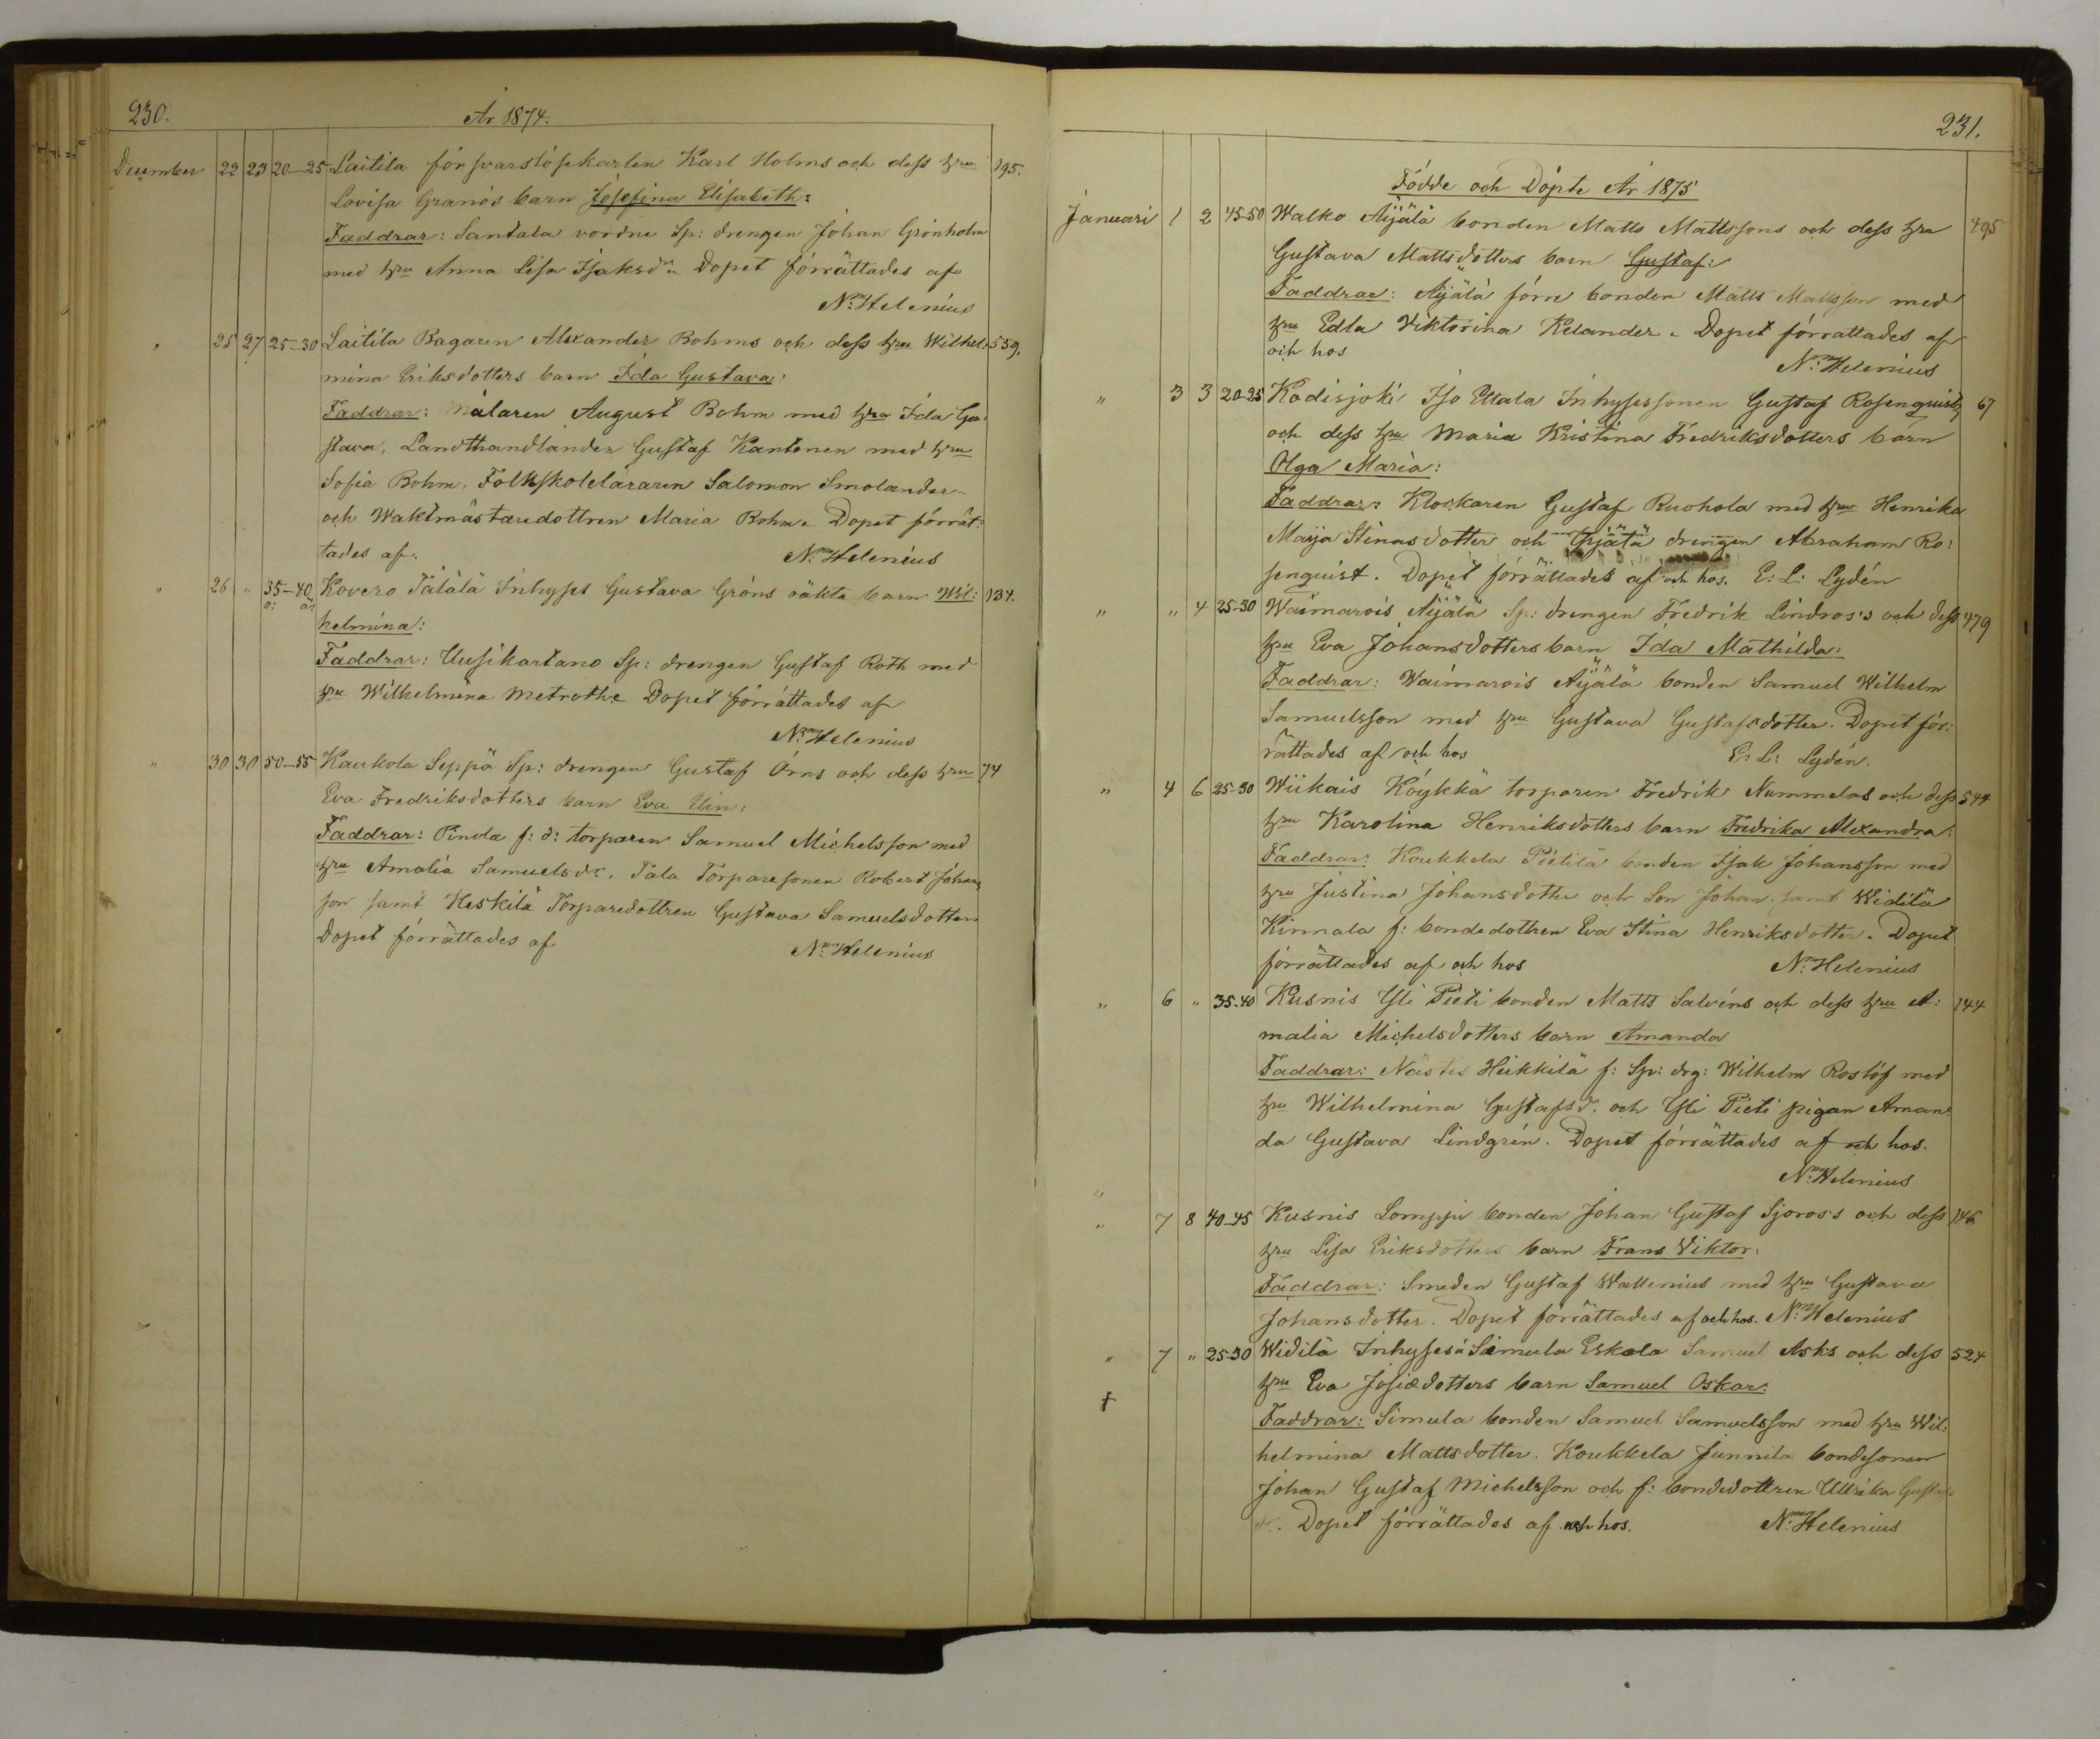 230.
År 1874.
December 22 23 20-25 Laitila försvarslösekarlen Karl Holms och dess hru 195.
Lovisa Granös barn Josefina Elisabeth:
Faddrar: Santala vordne Sp: drengen Johan Grönholm
med hru Anna Lisa Isaksdr. Dopet förrättades af
N. Helenius
" 25 27 25-30 Laitila Bagaren Alexander Bohms och dess hru Wilhel: 559.
mina Eriksdotters barn Ida Gustava:
Faddrar: Målaren August Bohm med hru Ida Gu:
stava, Landthandlanden Gustaf Kantonen med hru
Sofia Bohm. Folkskoleläraren Salomon Smolander
och Waktmästaredottren Maria Bohm. Dopet förrät:
tades af. N. Helenius
" 26 " 35-40 Kovero Tälälä Inhyses Gustava Gröns oäkta barn Wil: 134.
o: äg
helmina:
Faddrar: Uusikartano Sp: drengen Gustaf Roth med
hru Wilhelmina Metroth. Dopet förrättades af
N. Helenius
" 30 30 50-55 Kaukola Seppä Sp: drengen Gustaf Örns och dess hru 74
Eva Fredriksdotters barn Eva Elin:
Faddrar: Pinola f: d: torparen Samuel Michelsson med
hru Amalia Samuelsdr., Tala Torparesonen Robert Johans
son samt Heskilä Torparedottren Gustava Samuelsdotter.
Dopet förrättades af N. Helenius
231.
Födde och Döpte År 1875
Januari 1 2 45-50 Walko Äijälä bonden Matts Mattssons och dess hru 495
Gustava Mattsdotters barn Gustaf:
Faddrar: Äijälä förre bonden Matts Mattsson med
hru Edla Viktorina Kelander. Dopet förrattades af
och hos N. Helenius
" 3 3 20-25 Kodisjoki Iso Ettala Inhysessonen Gustaf Rosenquists 67
och dess hru Maria Kristina Fredriksdotters barn
Olga Maria:
Faddrar: Klockaren Gustaf Ruohola med hru Henrika
Maija Stinasdotter och drengen Abraham Ro:
senquist. Dopet förrättades af och hos. E: L: Lydén
" " 4 25-30 Waimarois Äijälä Sp: drengen Fredrik Lindros's och dess 479
hru Eva Johansdotters barn Ida Mathilda:
Faddrar: Waimarois Äijälä bonden Samuel Wilhelm
Samuelsson med hru Gustava Gustafsdotter. Dopet för:
rättades af och hos E: L: Lydén.
" 4 6 25-30 Wiikais Köykkä torparen Fredrik Nummelas och dess 544
hru Karolina Henriksdotters barn Fredrika Alexandra:
Faddrar: Koukkela Pietilä bonden Isak Johansson med
hru Justina Johansdotter och Son Johan, samt Widilä
Kinnala f: bondedottren Eva Stina Henriksdotter. Dopet
förrättades af och hos N. Helenius
" 6 " 35-40 Kusnis Yli Pieti bonden Matts Salvins och dess hru A: 144
malia Michelsdotters barn Amanda
Faddrar: Nästis Heikkilä f: Sp: drg: Wilhelm Roslöf med
hru Wilhelmina Gustafsdr. och Yli Pieti pigan Aman:
da Gustava Lindgrén. Dopet förrättades af och hos.
N. Helenius
"
" 7 8 40-45 Kusnis Lomppi bonden Johan Gustaf Sjoros's och dess 146
hru Lisa Eriksdotters barn Frans Viktor:
Faddrar: Smeden Gustaf Wallenius med hru Gustava
Johansdotter. Dopet förrättades af och hos. N. Helenius
" 7 " 25-30 Widilä Inhyses å Simula Eskola Samuel Asks och dess 524
† hru Eva Josiædotters barn Samuel Oskar:
Faddrar: Simula bonden Samuel Samuelsson med hru Wil:
helmina Mattsdotter. Koukkela Junnila bondesonen
Johan Gustaf Michelsson och f: bondedottren Ullrika Gustafs
d. Dopet förrättades af och hos. N. Helenius